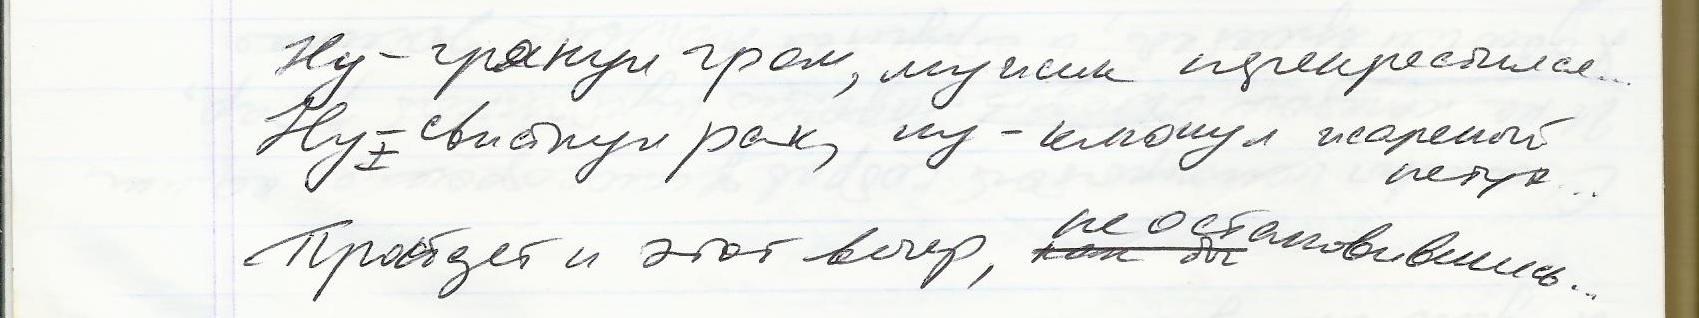 Ну - грянул гром, мужик перекрестился...
Ну - свистнул рак, ну - клюнул жареный
петух...
Пройдет и этот вечер, не остановившись...
как бы